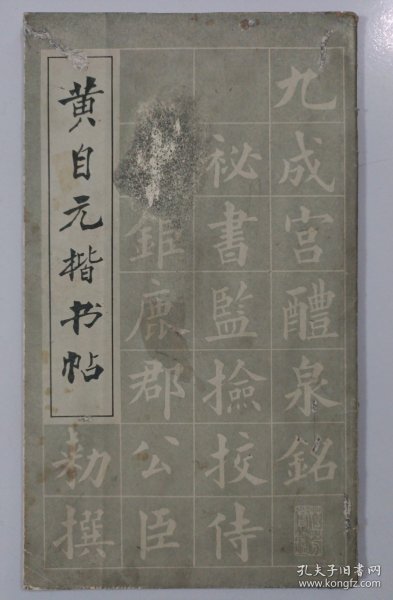 黄自元楷书帖
九成宫醴泉銘
祕書監撿挍侍
鉅鹿郡公臣
勑撰
孔夫子旧书网
www.kongfz.com